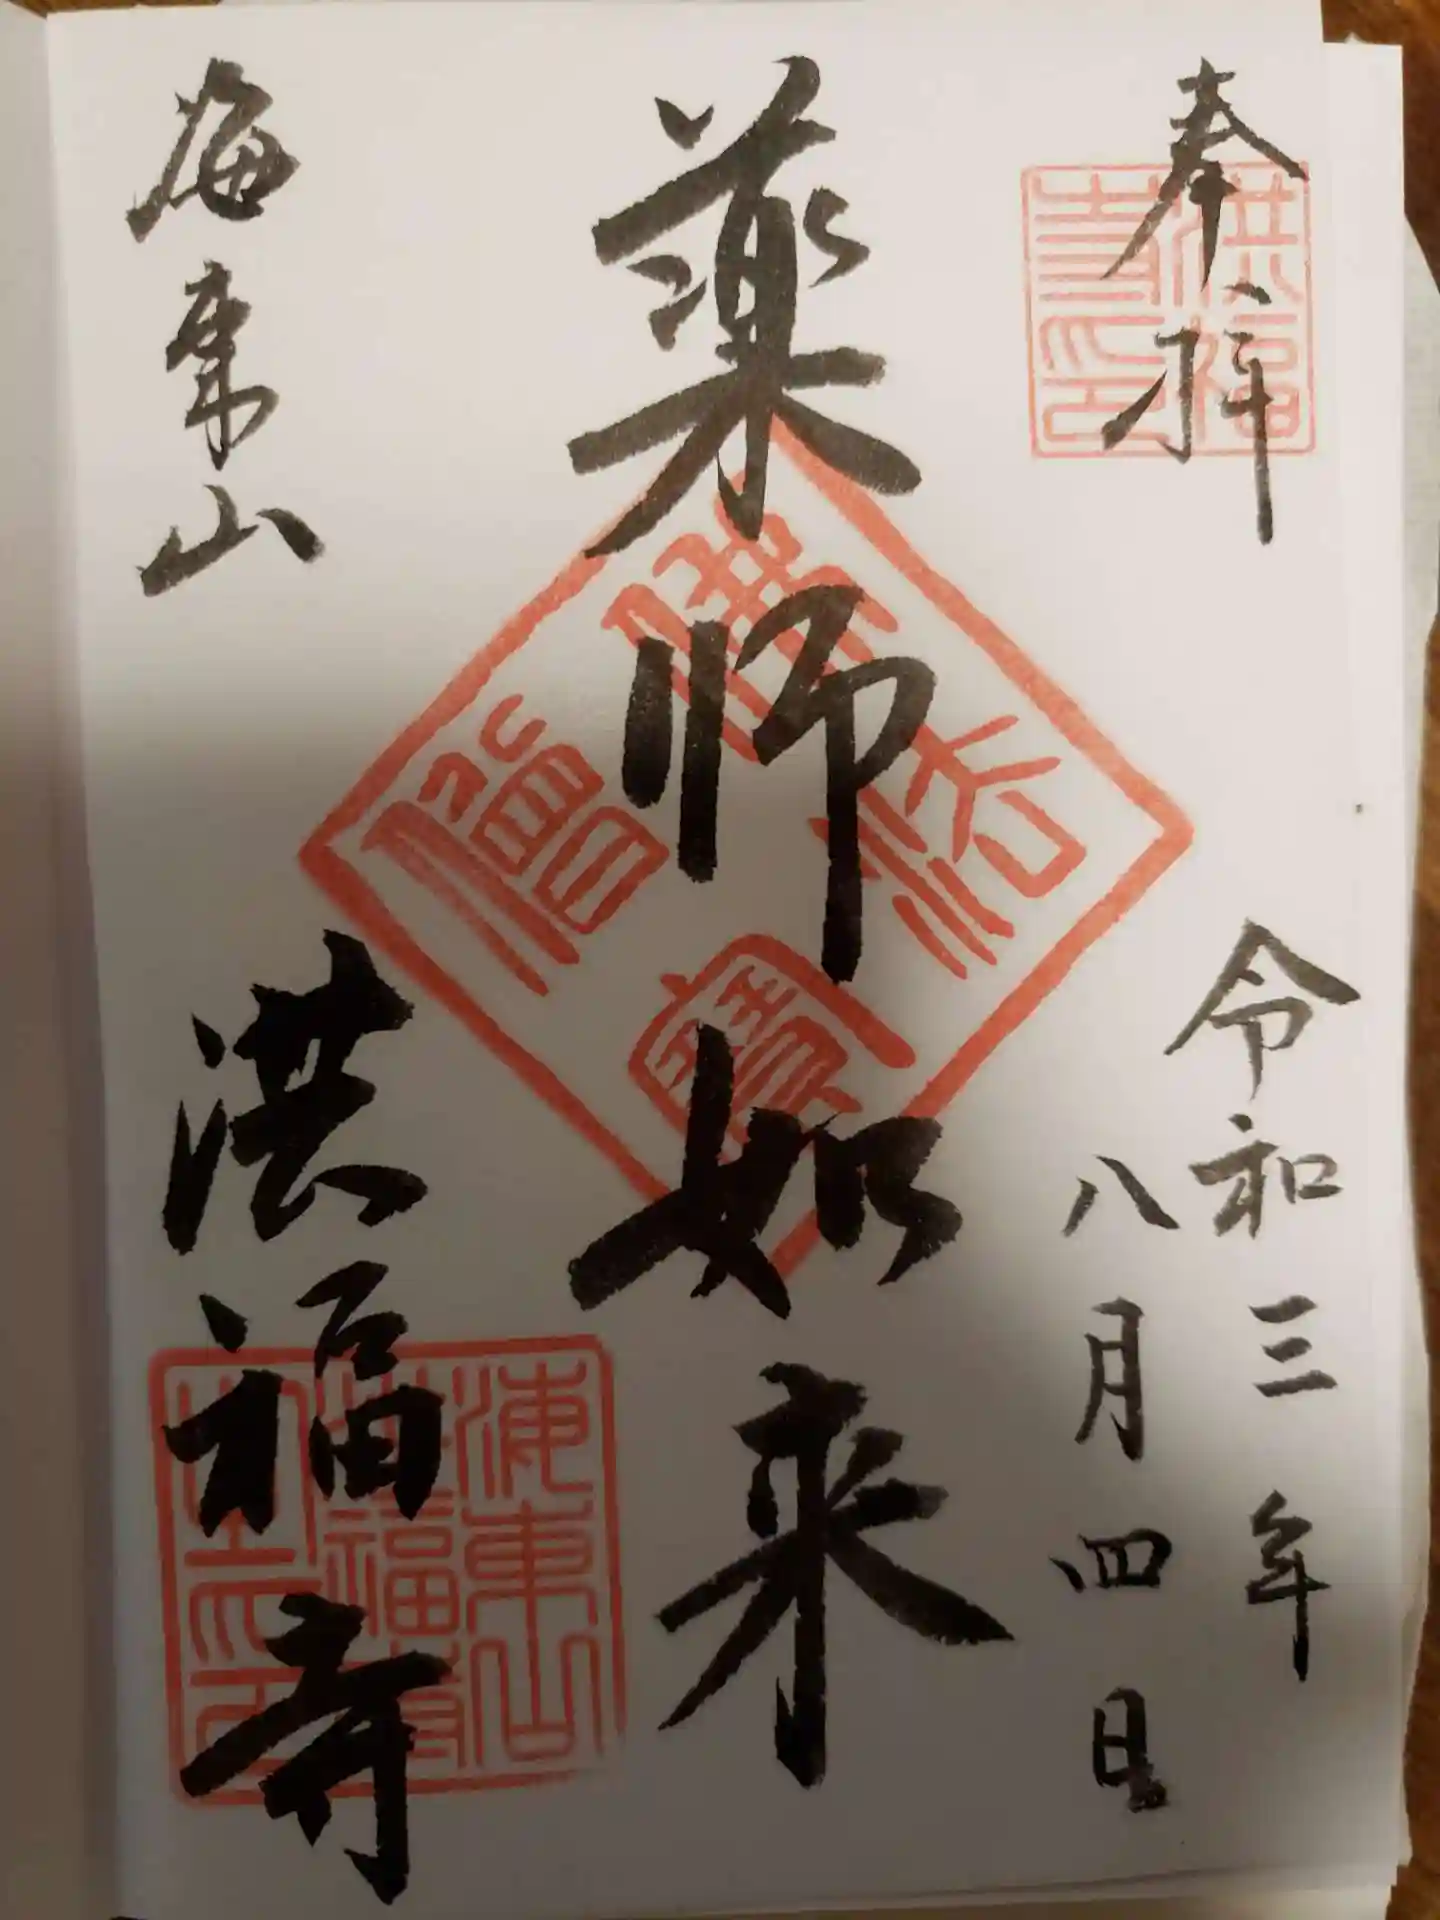 奉拝
令和三年
八月四日
薬師如来
海東山
洪福寺
洪福
寺印
佛法
僧寳
海東山
洪福寺